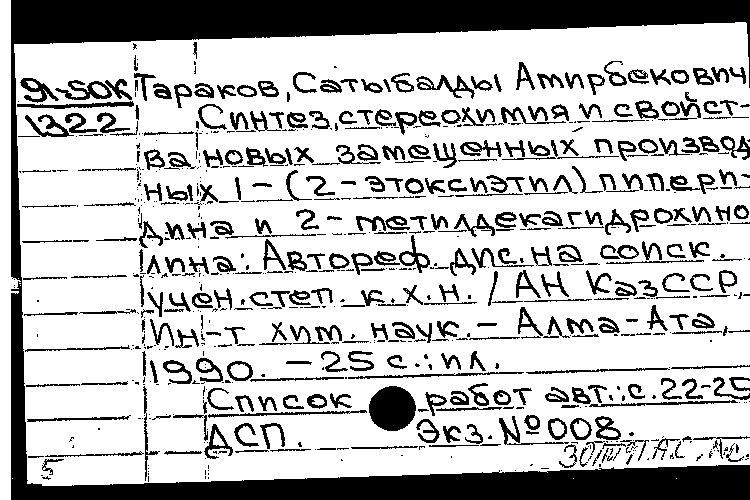 91-50К Тараков, Сатыбалды Амирбекович
1322 Синтез, стереохимия и свойст-
ва новых замещенных производ
ных 1-(2-этоксиэтил)пипери-
дина и 2-метилдекагидрохино
лина: Автореф. дис. на соиск.
учен. степ. к.х.н. / АН КазССР,
Ин-т хим. наук. - Алма-Ата,
1990. - 25 с.: ил.
Список работ авт.: с. 22-25
ДСП. Экз. № 008.
5